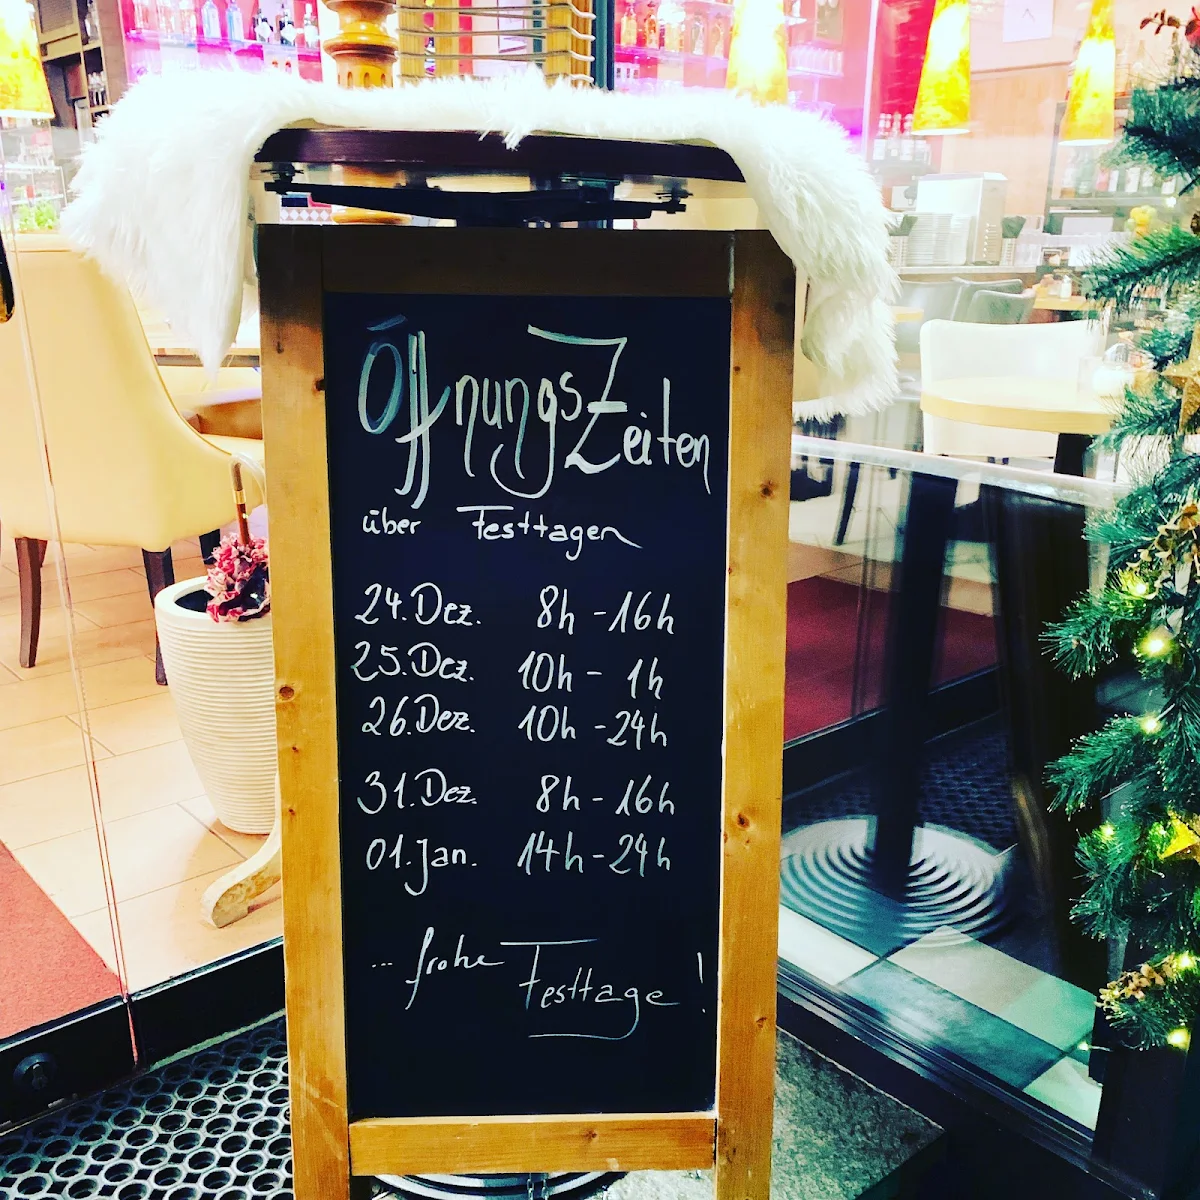 ÖffnungsZeiten
über Festtagen
24. Dez. 8h - 16h
25. Dez. 10h - 1h
26. Dez. 10h - 24h
31. Dez. 8h - 16h
01. Jan. 14h - 24h
... frohe Festtage!